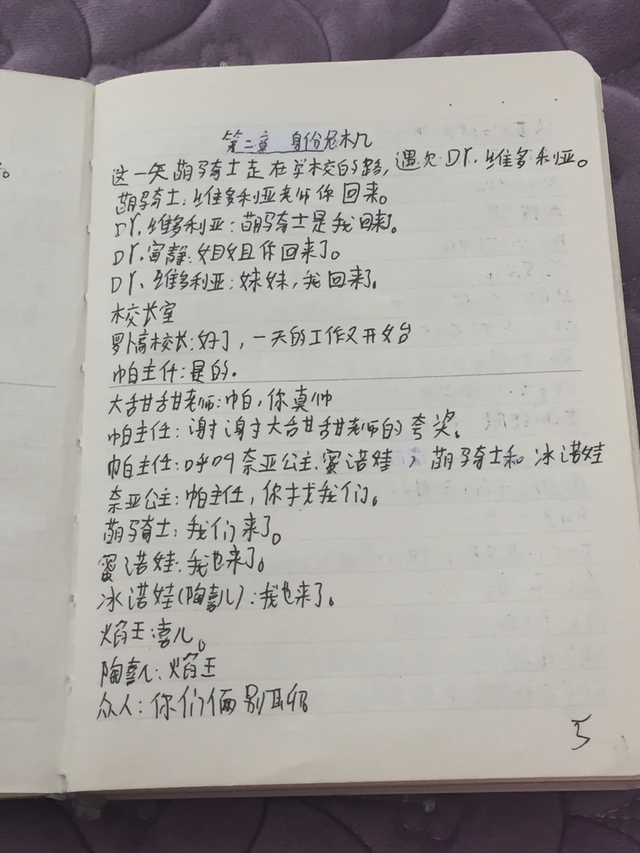 第二章 身份危机
这一天萌骑士走在学校的路,遇见Dr.维多利亚。
萌骑士:维多利亚老师你回来。
Dr.维多利亚:萌骑士是我回来。
Dr.宙静:姐姐且你回来了。
Dr.维多利亚:妹妹,我回来了。
校长室
罗卜高校长:好了,一天的工作又开始
帕主任:是的.
大甜甜老师:帕,你真帅
帕主任:谢谢大甜甜老师的夸奖。
帕主任:呼叫奈亚公主.蜜诺娃,萌骑士和冰诺娃
奈亚公主:帕主任,你找我们。
萌骑士:我们来了。
蜜诺娃:我也来了。
冰诺娃(陶喜儿):我也来了。
焰王:喜儿。
陶喜儿:焰王
众人:你们俩别
5